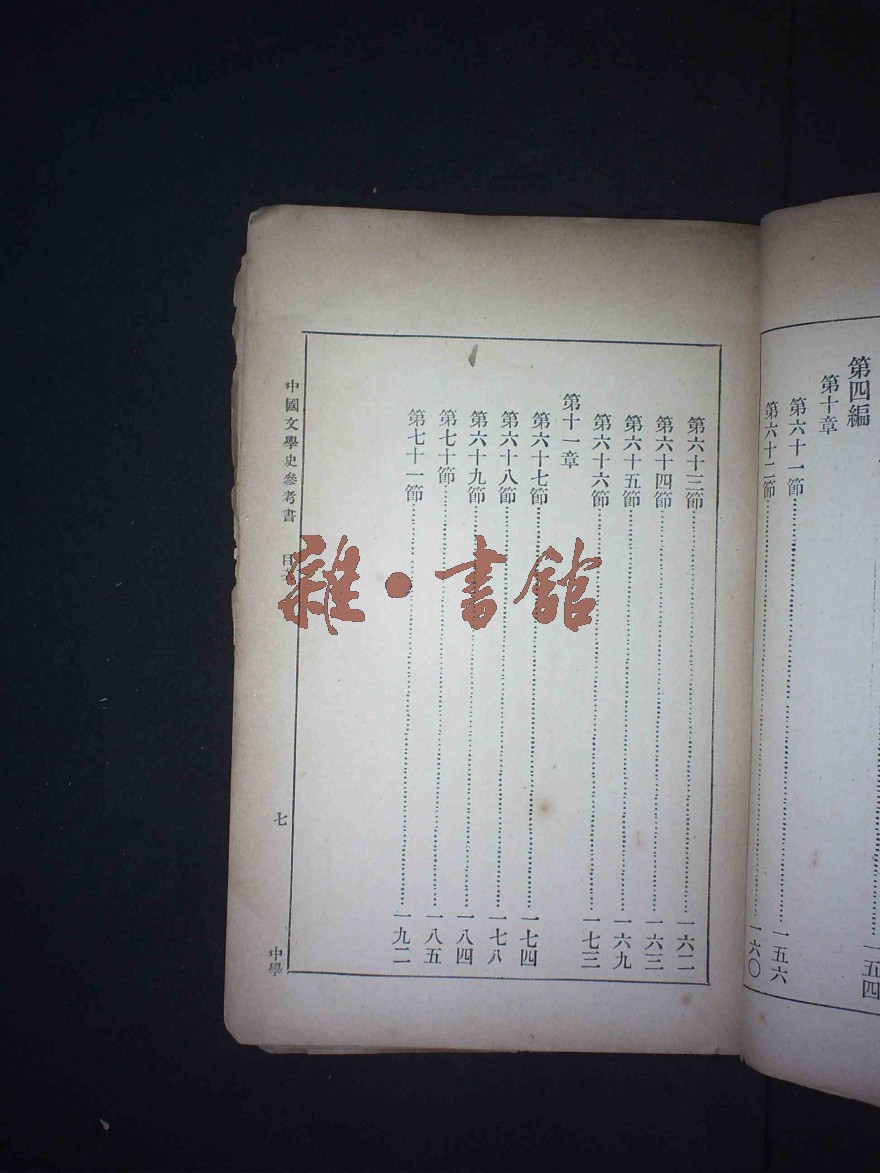 一五四
第四編
第十章
第六十一節 一五六
第六十二節 一六〇
第六十三節 一六二
第六十四節 一六三
第六十五節 一六九
第六十六節 一七三
第十一章
第六十七節 一七四
第六十八節 一七八
第六十九節 一八四
第七十節 一八五
第七十一節 一九二
中國文學史參考書 目 七 中學
雜・書館